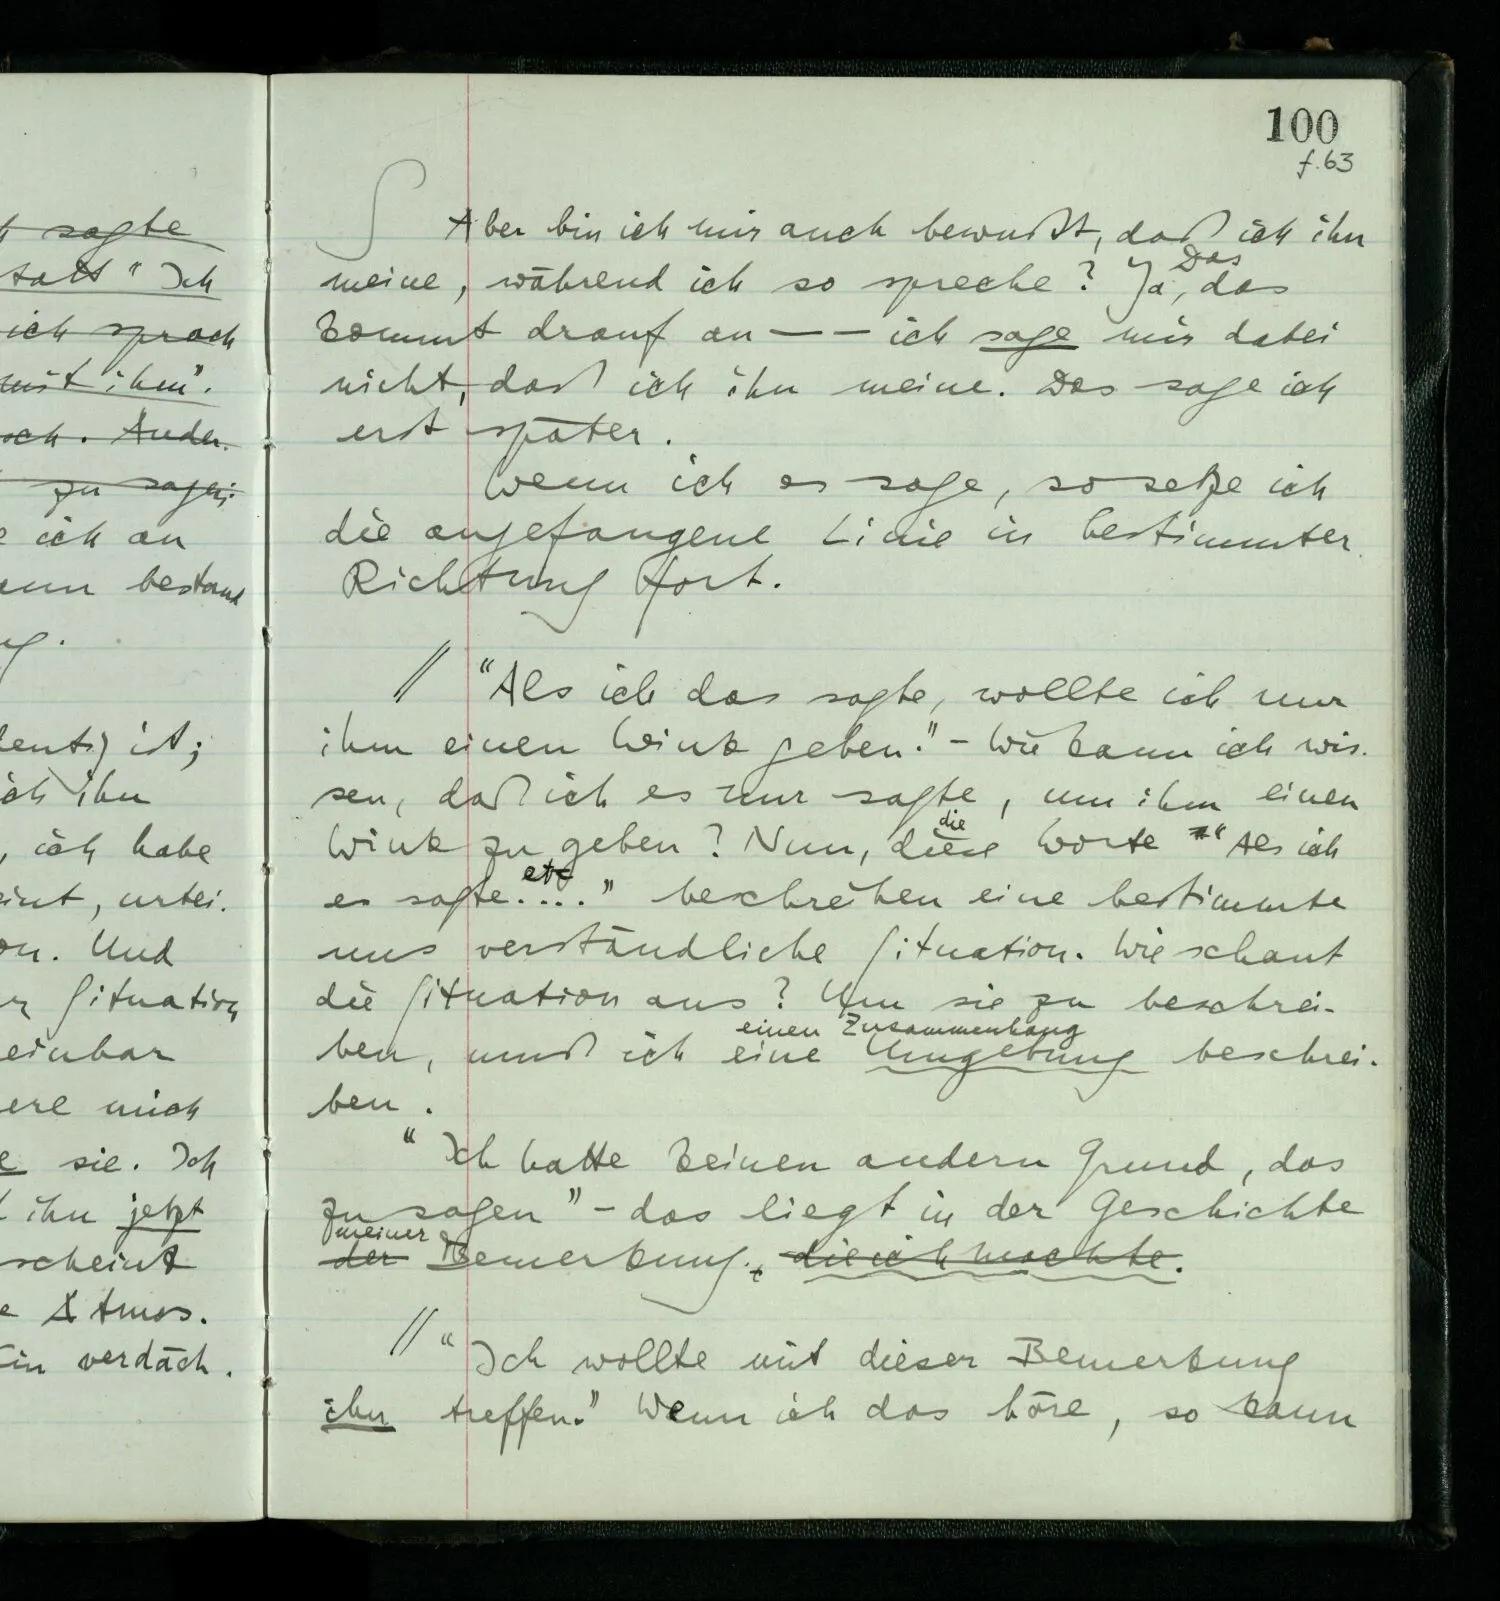 100
f. 63
sagte
Ich
ich sprach
mit ihm".
Ander-
zu sagen:
ich an
bestand
ist;
ich ihn
, ich habe
, urtei-
Und
Situation
mich
sie. Ich
ihn jetzt
scheint
Atmos-
Ein verdäch-
S Aber bin ich mir auch bewußt, daß ich ihn
Das
meine, während ich so spreche? Ja, das
kommt drauf an — — ich sage mir dabei
nicht, daß ich ihn meine. Das sage ich
erst später.
Wenn ich es sage, so setze ich
die angefangene Linie in bestimmter
Richtung fort.
// "Als ich das sagte, wollte ich nur
ihm einen Wink geben." – Wie kann ich wis-
sen, daß ich es nur sagte, um ihm einen
die
Wink zu geben? Nun, diese Worte "Als ich
etc
es sagte...." beschreiben eine bestimmte
uns verständliche Situation. Wie schaut
die Situation aus? Um sie zu beschrei-
einen Zusammenhang
ben, muß ich eine Umgebung beschrei-
ben.
"Ich hatte keinen andern Grund, das
zu sagen" – das liegt in der Geschichte
meiner
der Bemerkung, die ich machte.
// "Ich wollte mit dieser Bemerkung
ihn treffen." Wenn ich das höre, so kann